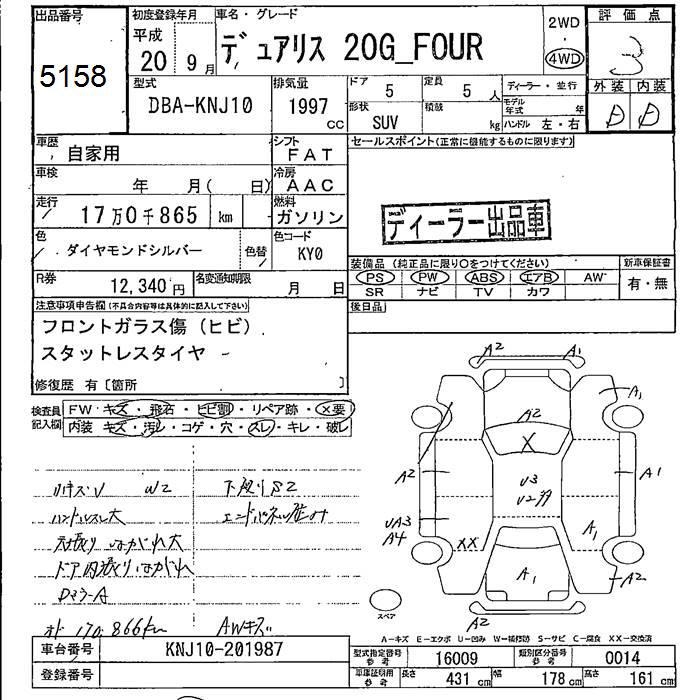 出品番号
5158
初度登録年月
平成
20 9月
車名・グレード
デュアリス 20G_FOUR
2WD
・
4WD
評価点
3
型式
DBA-KNJ10
排気量
1997
CC
ドア
5
定員
5 人
形状
SUV
積載
kg
ディーラー・並行
モデル年式 年
ハンドル 左・右
外装 内装
D D
車歴
自家用
シフト
FAT
セールスポイント(正常に機能するものに限ります)
車検
年 月( 日)
冷房
AAC
走行
17万0千865 km
燃料
ガソリン
ディーラー出品車
色
ダイヤモンドシルバー
色替
色コード
KY0
R券
12,340円
名変通知期限
月 日
装備品(純正品に限り〇をつけてください)
PS PW ABS エアB AW
SR ナビ TV カワ
新車保証書
有・無
注意事項申告欄(不具合内容等は具体的に記入して下さい)
フロントガラス傷(ヒビ)
スタットレスタイヤ
修復歴 有〔箇所 〕
後日品
検査員記入欄
FW キズ・飛石・ヒビ割・リペア跡・X要
内装 キズ・汚レ・コゲ・穴・スレ・キレ・破レ
W2
下廻りS2
ハンドルスレ大
天張りはがれ大
ドア内張りはがれ
170,866km
AWキズ
A2
A1
A2
A1
X
A2
U3
A1
UA3
A4
XX
A1
A1
A2
A2
スペア
A-キズ E-エクボ U-凹み W-補修跡 S-サビ C-腐食 XX-交換済
車台番号
KNJ10-201987
登録番号
型式指定番号
参考
16009
類別区分番号
参考
0014
車庫証明用
参考
長さ 431 cm
幅 178 cm
高さ 161 cm